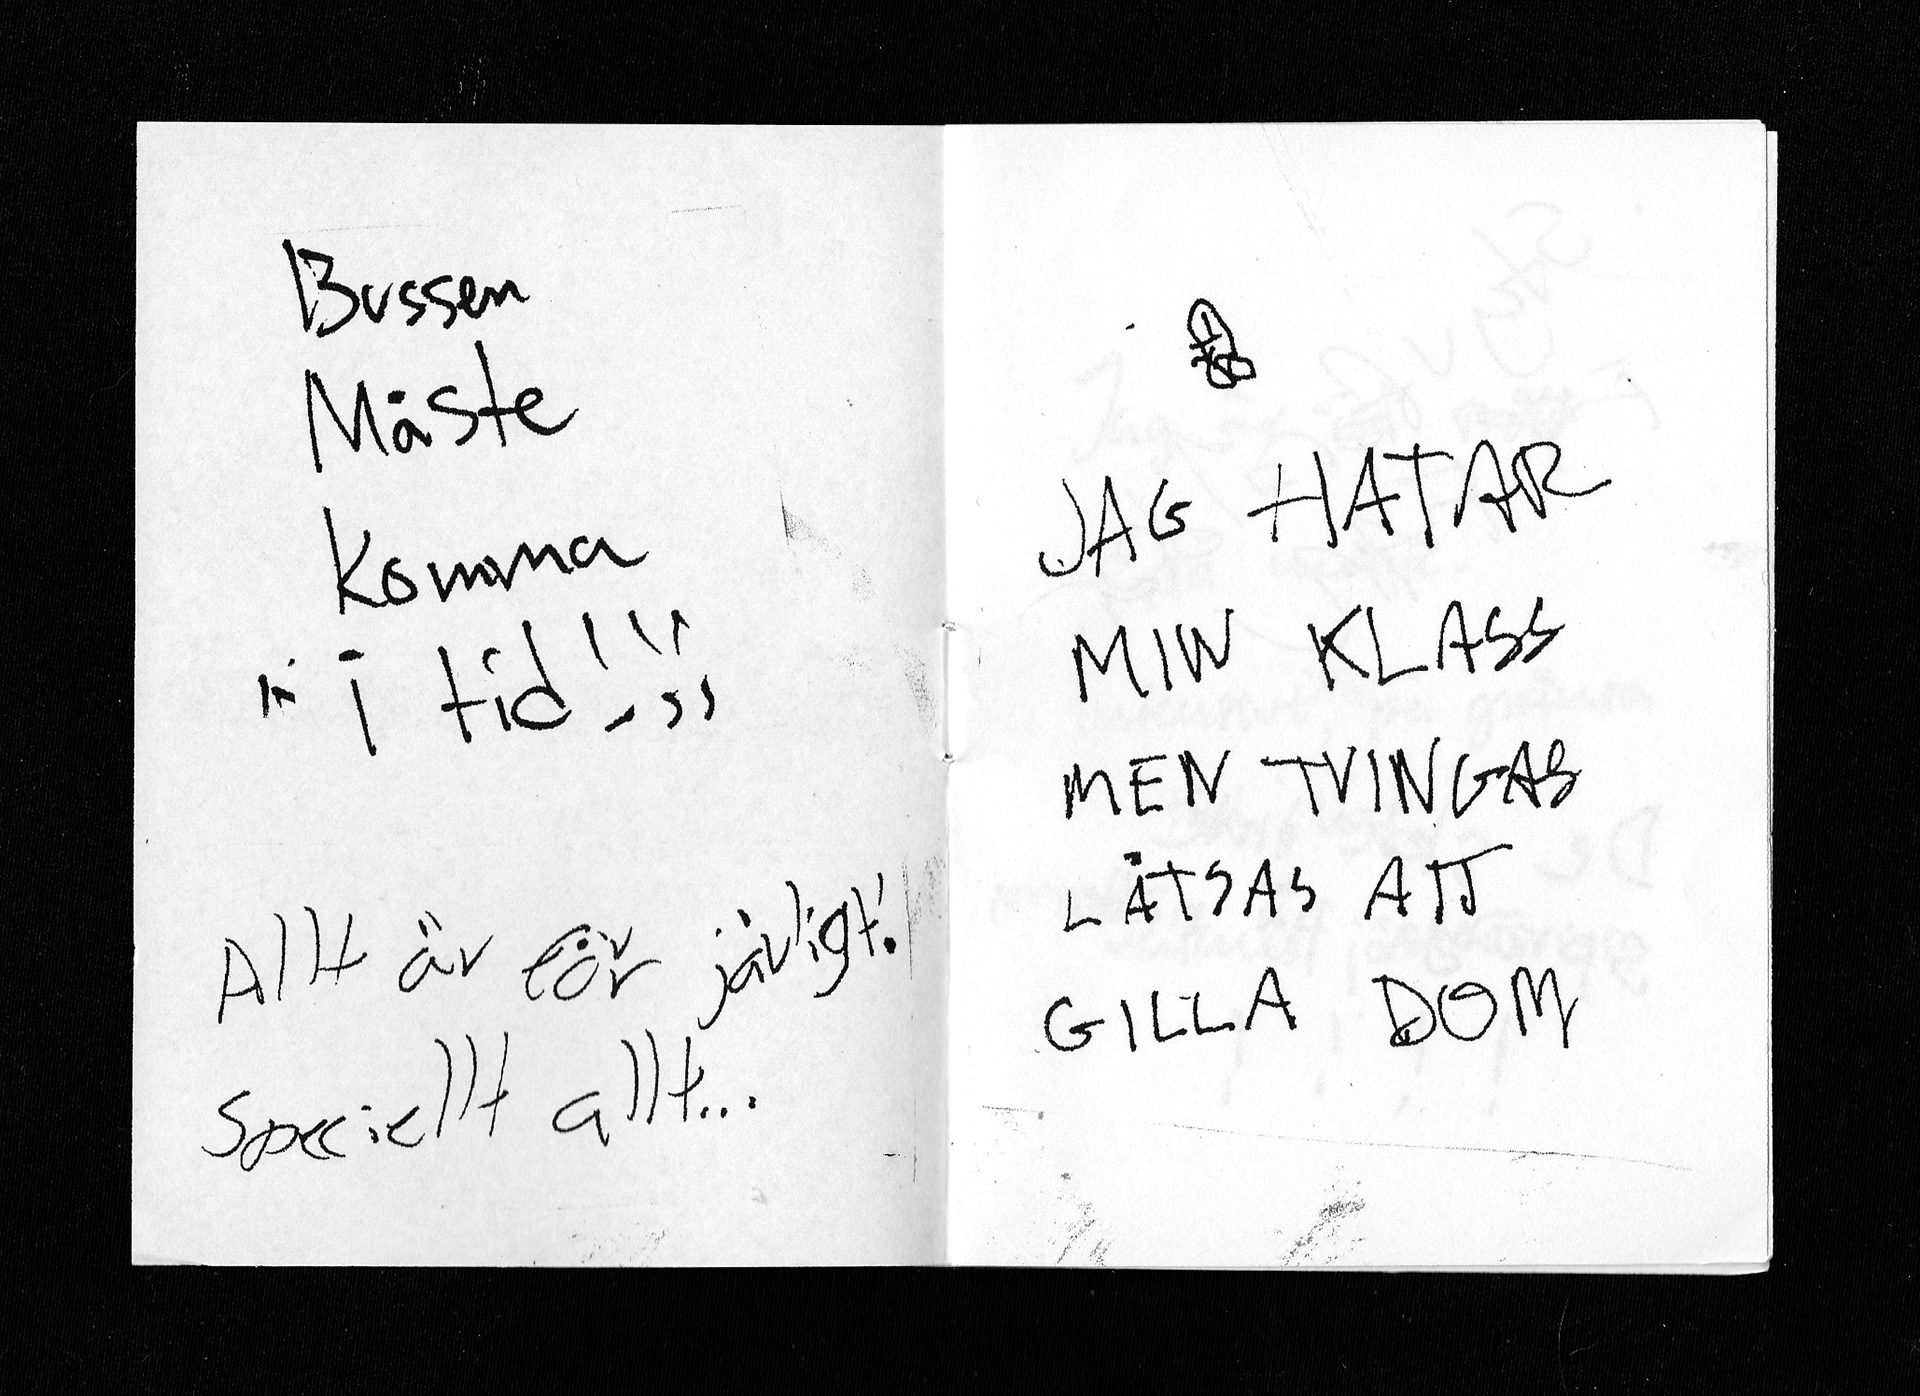 Bussen
Måste
Komma
i tid!!!
Allt är för jävligt!
Speciellt allt...
JAG HATAR
MIN KLASS
MEN TVINGAS
LÅTSAS ATT
GILLA DOM